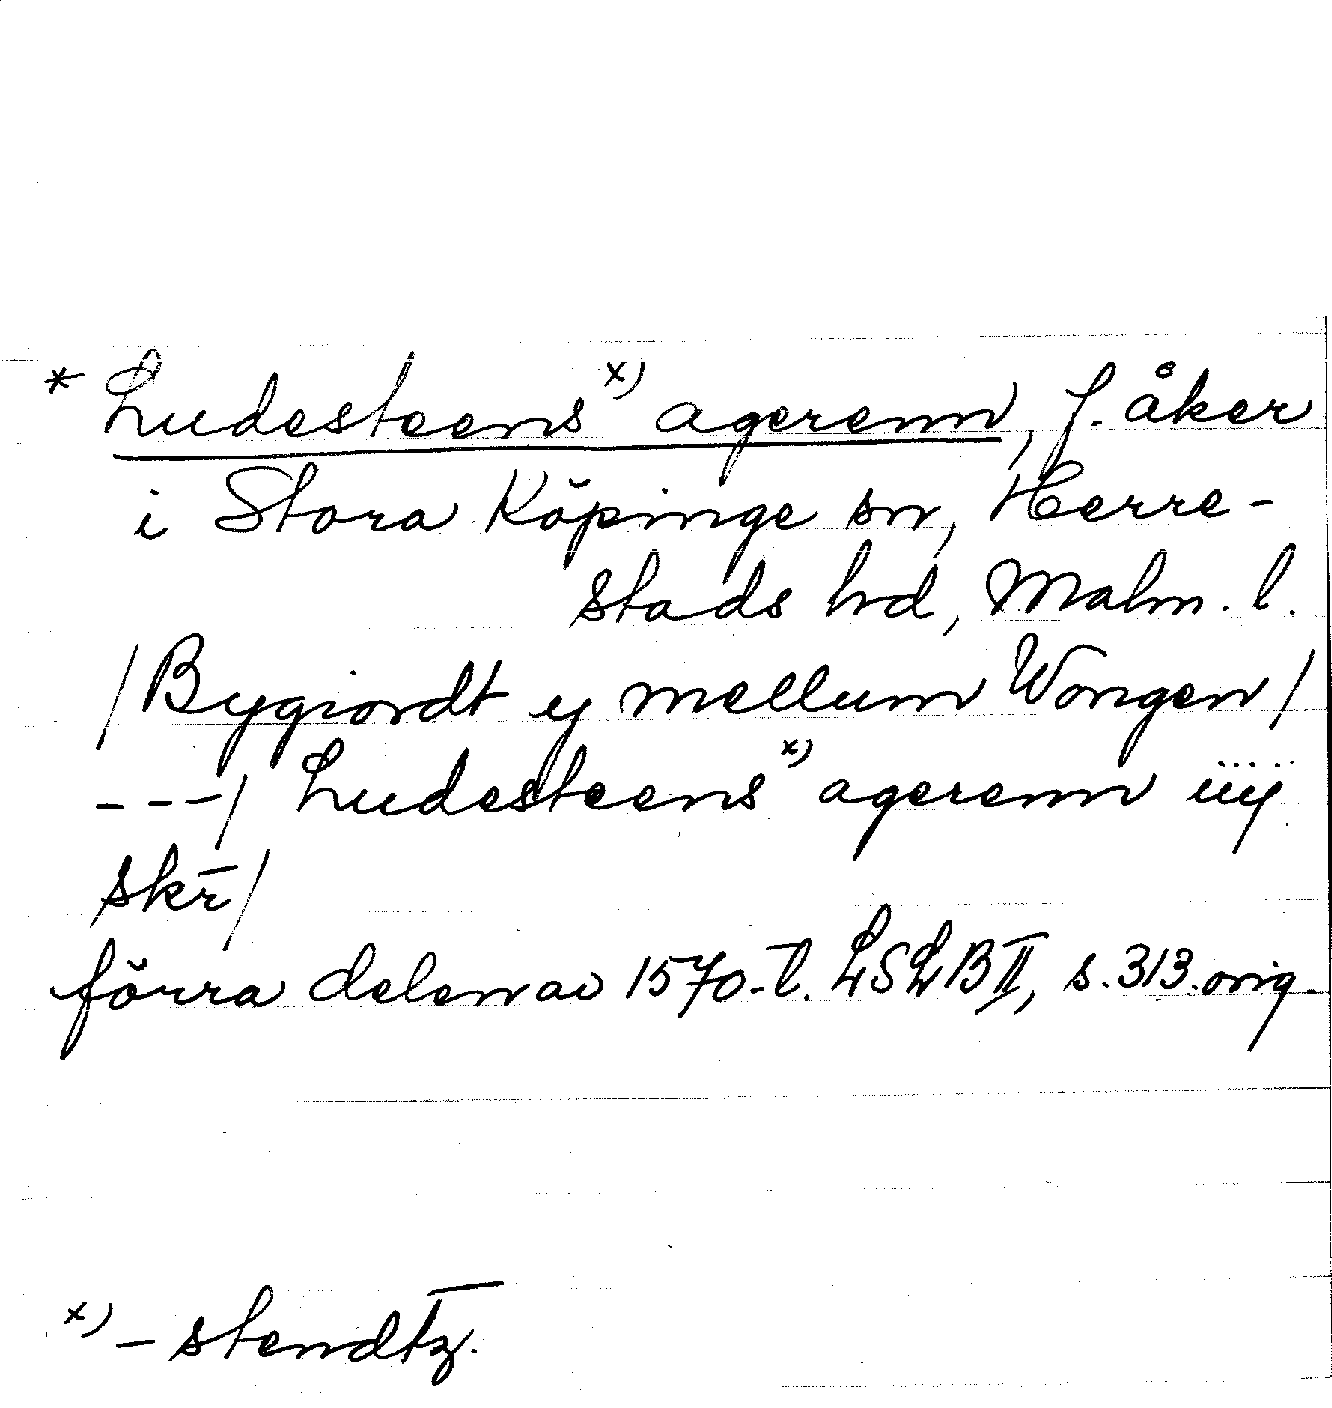 * Ludesteens x) agerenn, f. åker
i Stora Köpinge sn, Herre-
stads hd, Malm. l.
/Bygiordt ey mellum Wongen/
---/ Ludesteens x) agerenn iiij
skr̄/
förra delen av 1570-t. LSLB II, s. 313. orig.
x) - stendtz.